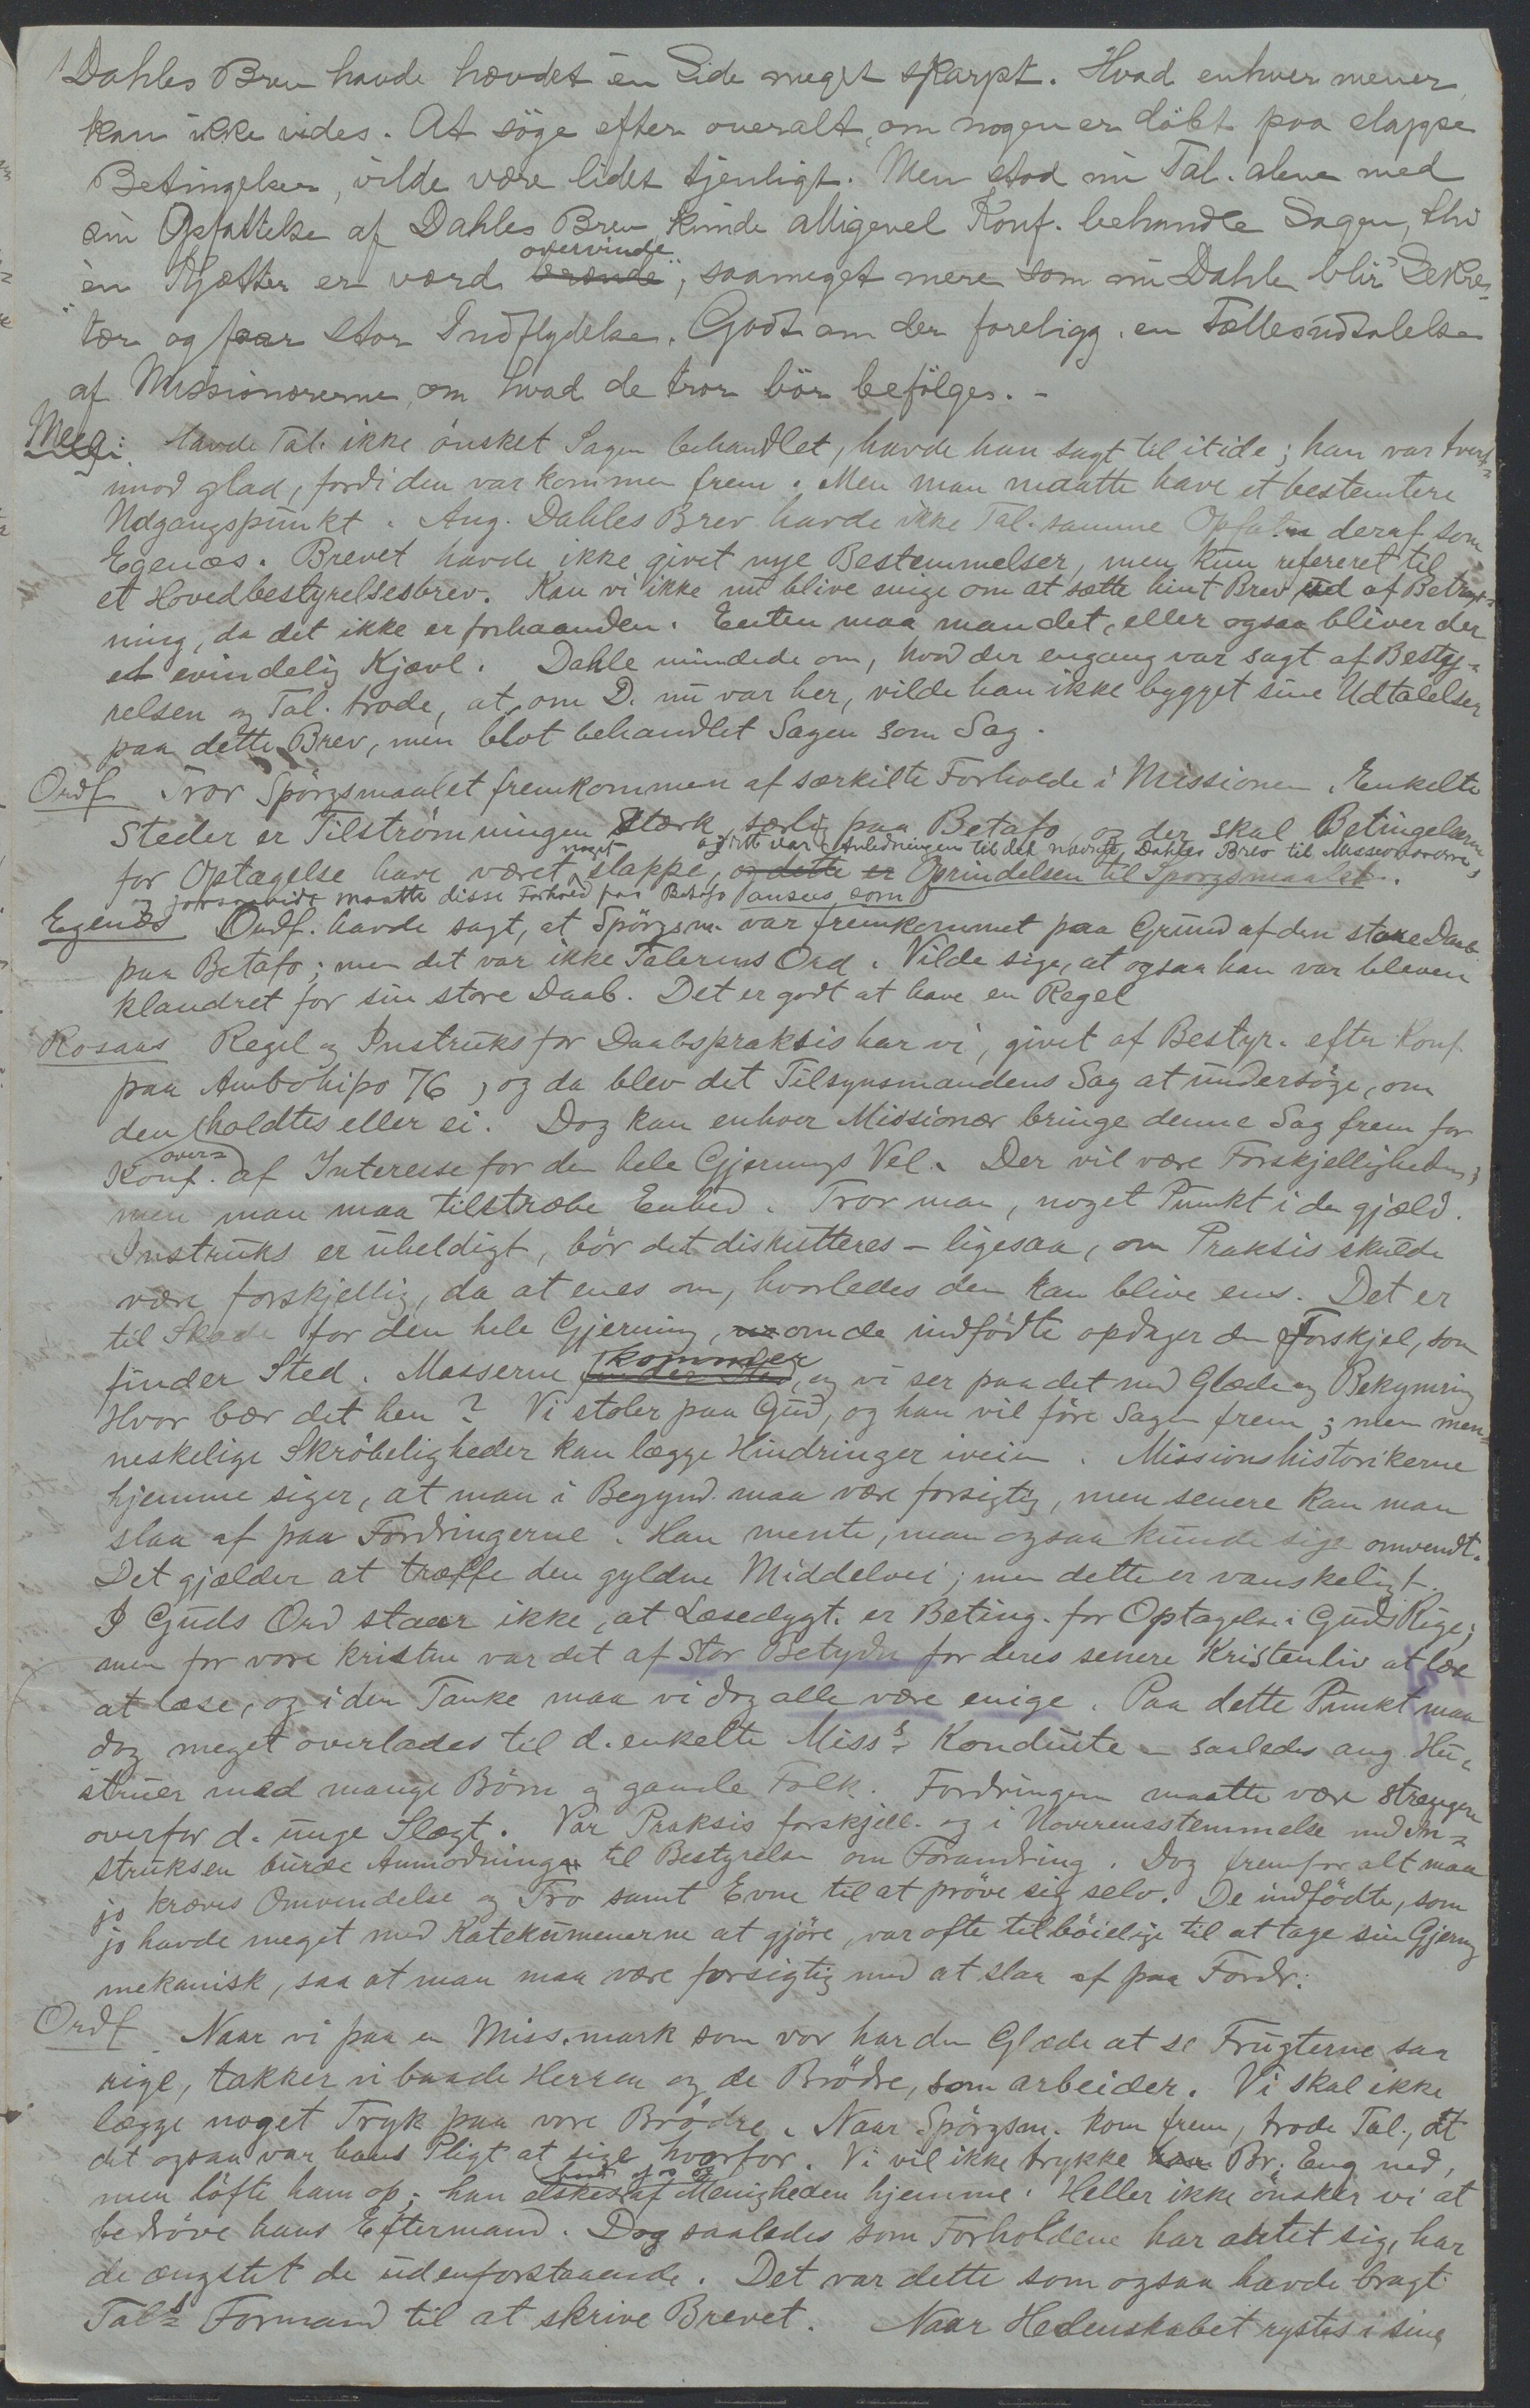 Dahles Brev havde hævdet én Side meget skarpt. Hvad enhver mener,
kan ikke vides. At söge efter overalt, om nogen er döbt paa slappe
Betingelser, vilde være lidet tjenligt. Men stod nu Tal. alene med
sin Opfattelse af Dahles Brev, kunde alligevel Konf. behandle Sagen, thi
overvinde
"én Kjætter er værd brænde", saameget mere som nu Dahle blir Sekre-
tær og faar stor Indflydelse. Godt om der foreligg. en Fællesudtalelse
af Missionærerne om hvad de tror bör befölges. -
Meeg: Havde Tal. ikke önsket Sagen behandlet, havde han sagt til itide; han var tvert-
imod glad, fordi den var kommen frem. Men man maatte have et bestemtere
Udgangspunkt. Ang. Dahles Brev havde ikke Tal. samme Opfatn deraf som
Egenæs. Brevet havde ikke givet nye Bestemmelser, men kun refereret til
et Hovedbestyrelsesbrev. Kan vi ikke nu blive enige om at sætte hint Brev ud af Betragt-
ning, da det ikke er forhaanden. Enten maa man det, eller ogsaa bliver der
et evindelig Kjævl. Dahle mindede om, hvad der engang var sagt af Besty-
relsen og Tal. trode, at om D. nu var her, vilde han ikke bygget sine Udtalelser
paa dette Brev, men blot behandlet Sagen som Sag.
Ordf Tror Spörgsmaalet fremkommen af særkilte Forholde i Missionen. Enkelte
Steder er Tilströmningen stærk, særlig paa Betafo, og der skal Betingelserne
noget og dette var Anledningen til det nævnte Dahles Brev til Missionærerne,
for Optagelse have været slappe, og dette er Oprindelsen til Spörgsmaalet.
og forsaavidt maatte disse Forhold paa Betafo ansees som
Egenæs Ordf. havde sagt, at Spörgsm. var fremkommet paa Grund af den store Daab
paa Betafo; men det var ikke Talerens Ord. Vilde sige, at ogsaa han var bleven
klandret for sin store Daab. Det er godt at have en Regel
Rosaas Regel og Instruks for Daabspraksis har vi, givet af Bestyr. efter Konf.
paa Ambohipo 76, og da blev det Tilsynsmandens Sag at undersöge, om
den holdtes eller ei. Dog kan enhver Missionær bringe denne Sag frem for
over-
Konf. af Interesse for den hele Gjernings Vel. Der vil være Forskjelligheder,
men man maa tilstræbe Enhed. Tror man, noget Punkt i den gjæld.
Instruks er uheldigt, bör det diskutteres - ligesaa, om Praksis skulde
være forskjellig, da at enes om, hvorledes den kan blive ens. Det er
til Skade for den hele Gjerning, om de indfödte opdager den Forskjel, som
kommer
finder Sted. Masserne finder Sted, og vi ser paa det med Glæde og Bekymring
Hvor bær det hen? Vi stoler paa Gud, og han vil före Sagen frem; men men-
neskelige Skröbeligheder kan lægge Hindringer iveien. Missionshistorikerne
hjemme siger, at man i Begynd. maa være forsigtig, men senere kan man
slaa af paa Fordringerne. Han mente, man ogsaa kunde sige omvendt.
Det gjælder at træffe den gyldne Middelvei; men dette er vanskeligt.
I Guds Ord staar ikke, at Læsedygt. er Beting. for Optagelse i Guds Rige;
men for vore kristne var det af stor Betydn for deres senere Kristenliv at lær
at læse, og i den Tanke maa vi dog alle være enige. Paa dette Punkt maa
dog meget overlades til d. enkelte Miss.s Konduite - saaledes ang. Hu-
struer med mange Börn og gamle Folk. Fordringen maatte være strengere
overfor d. unge Slægt. Var Praksis forskjell. og i Uoverensstemmelse med In-
struksen burde Anmodning til Bestyrelsen om Forandring. Dog fremfor alt maa
jo kræves Omvendelse og Tro samt Evne til at pröve sig selv. De indfödte, som
jo havde meget med Katekumenerne at gjöre, var ofte tilböielige til at tage sin Gjerning
mekanisk, saa at man maa være forsigtig med at slaa af paa Fordr.
Ordf Naar vi paa en Miss.mark som vor har den Glæde at se Frugterne saa
rige, takker vi baade Herren og de Brödre, som arbeider. Vi skal ikke
lægge noget Tryk paa vore Brödre. Naar Spörgsm. kom frem, trode Tal., at
det ogsaa var hans Pligt at sige hvorfor. Vi vil ikke trykke Br. Eng ned,
men löfte ham op; han elskes af Menigheden hjemme. Heller ikke önsker vi at
bedröve hans Eftermand. Dog saaledes som Forholdene har artet sig, har
de ængstet de udenforstaaende. Det var dette som ogsaa havde bragt
Tal.s Formand til at skrive Brevet. Naar Hedenskabet rystes i sine